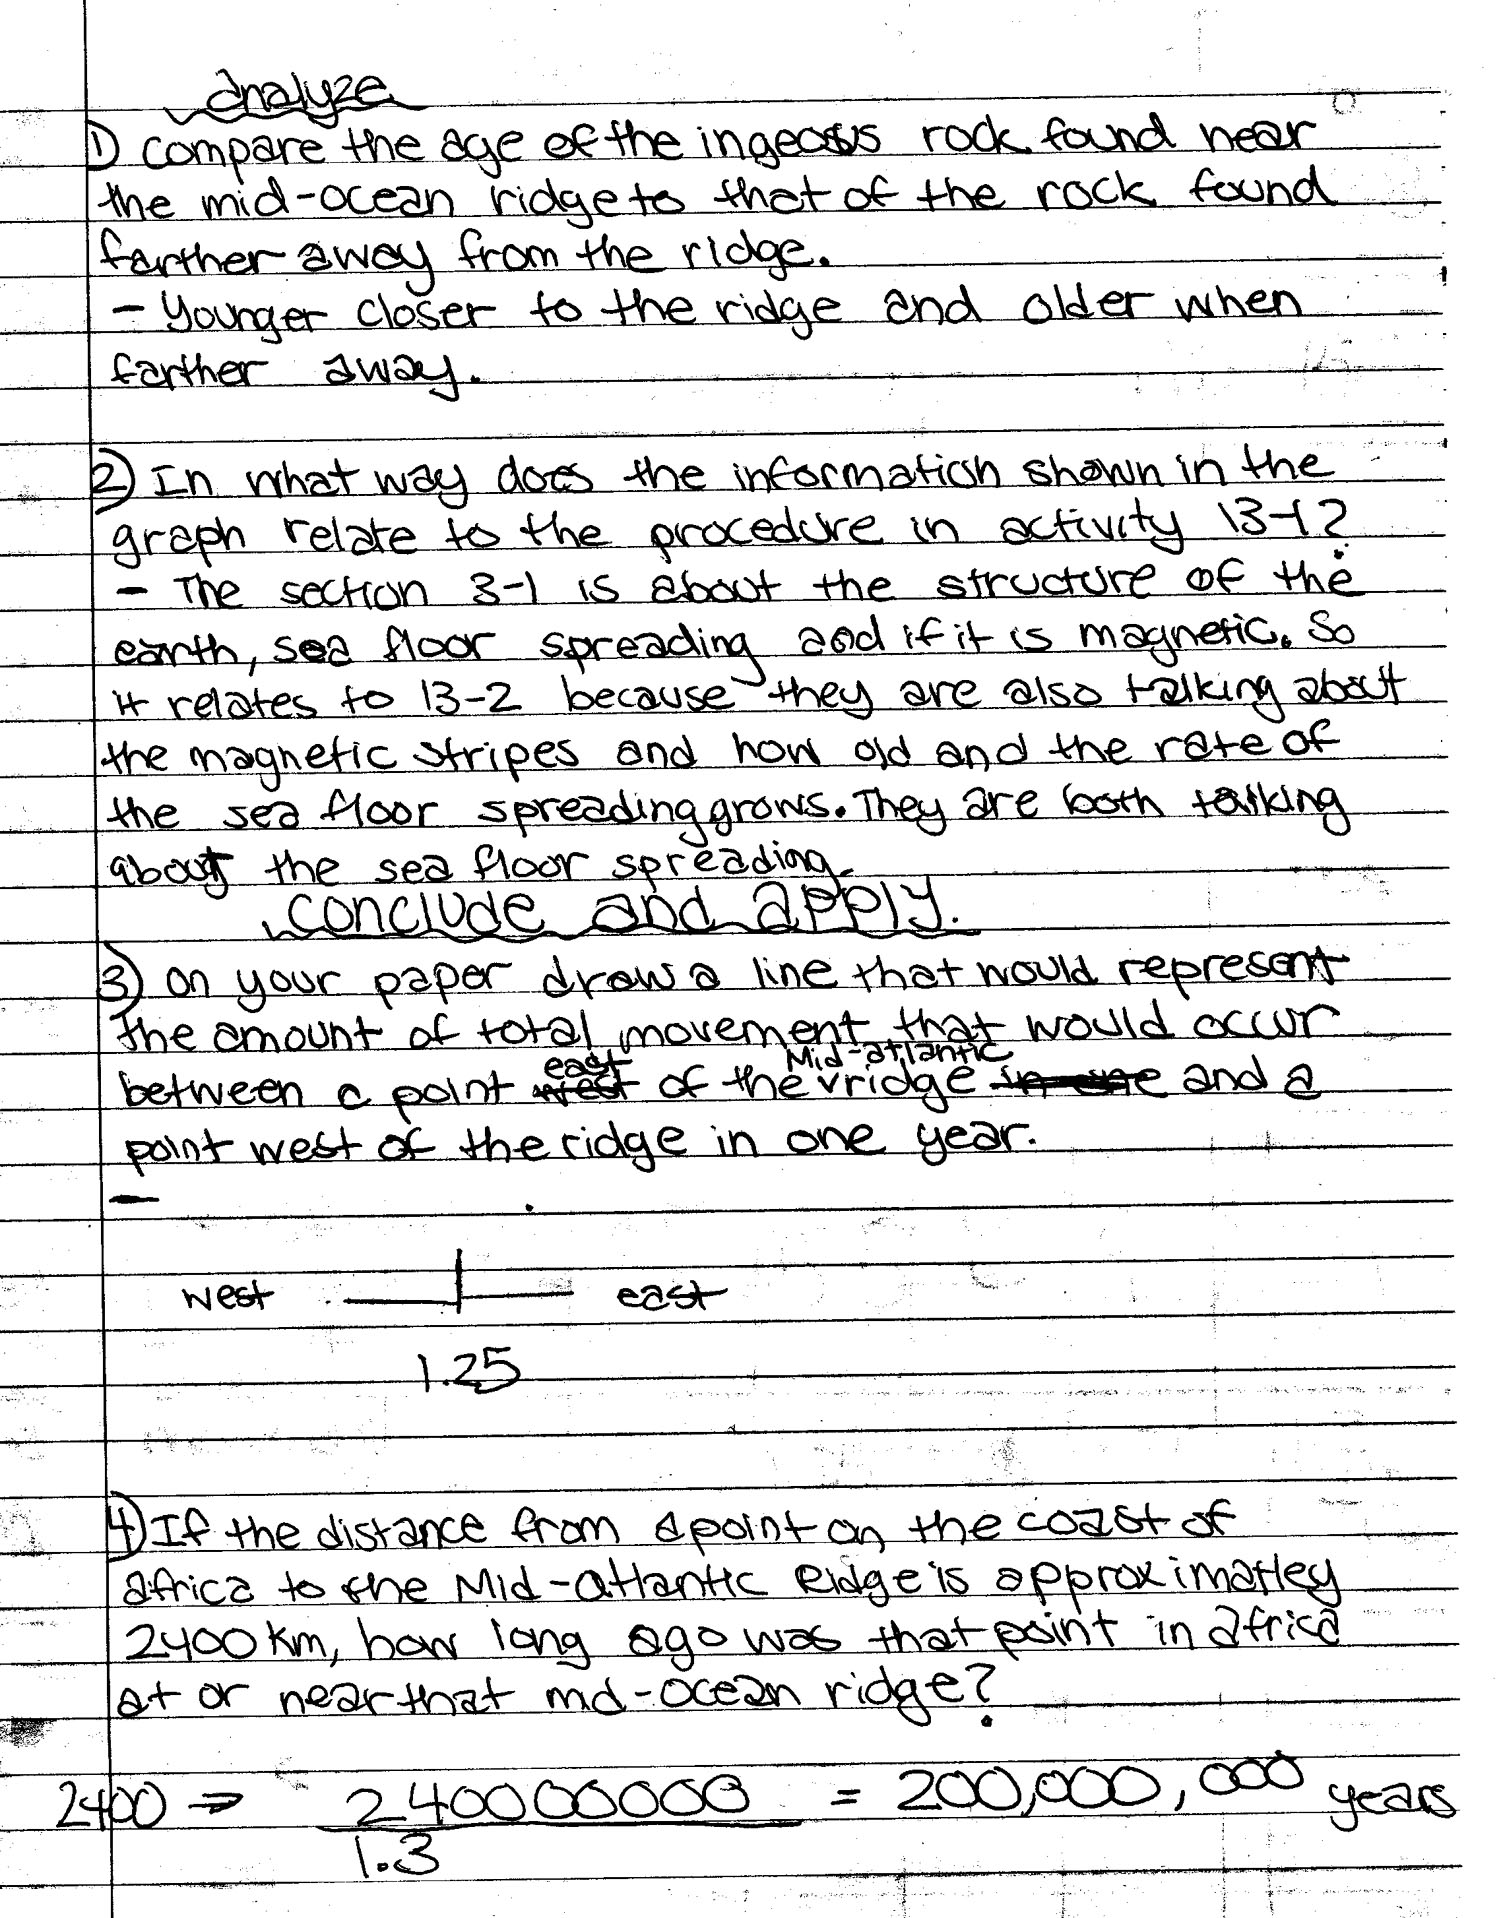 analyze
1) compare the age of the ingeous rock found near
the mid-ocean ridge to that of the rock found
farther away from the ridge.
- Younger closer to the ridge and older when
farther away.
2) In what way does the information shown in the
graph relate to the procedure in activity 13-1?
- The section 3-1 is about the structure of the
earth, sea floor spreading and if it is magnetic. So
it relates to 13-2 because they are also talking about
the magnetic stripes and how old and the rate of
the sea floor spreading grows. They are both talking
about the sea floor spreading.
conclude and apply.
3) on your paper draw a line that would represent
the amount of total movement that would occur
east Mid-atlantic
between a point west of the ridge in one and a
point west of the ridge in one year.
-
west east
1.25
4) If the distance from a point on the coast of
africa to the Mid-atlantic Ridge is approximatley
2400 km, how long ago was that point in africa
at or near that md-ocean ridge?
2400 → 240000000 = 200,000,000 years
1.3